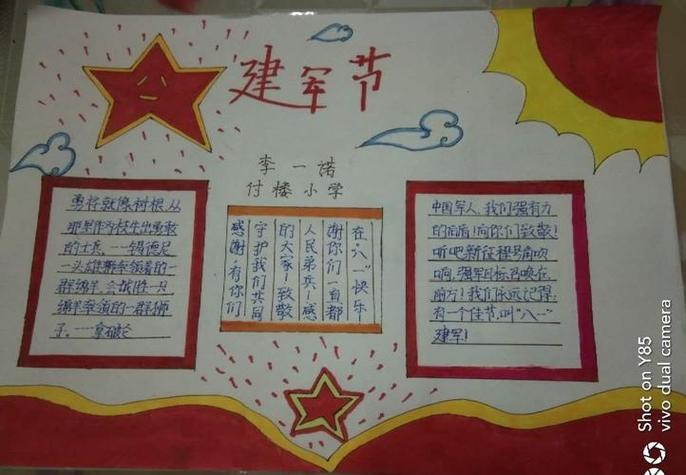 建军节
李一诺
付楼小学
勇将就像树根,从
那里作为枝生出勇敢
的士兵。——锡德尼
一头雄狮率领着的一
群绵羊,会战胜一只
绵羊率领的一群狮
子。——拿破仑
在"八一"快乐
谢你们一直都
人民弟兵!感
的大家!致敬
守护我们共同
感谢,有你们
中国军人,我们强有力
的后盾!向你们致敬!
听吧新征程号角吹
响,强军目标召唤在
前方!我们永远记得,
有一个佳节,叫"八一"
建军!
Shot on Y85
vivo dual camera